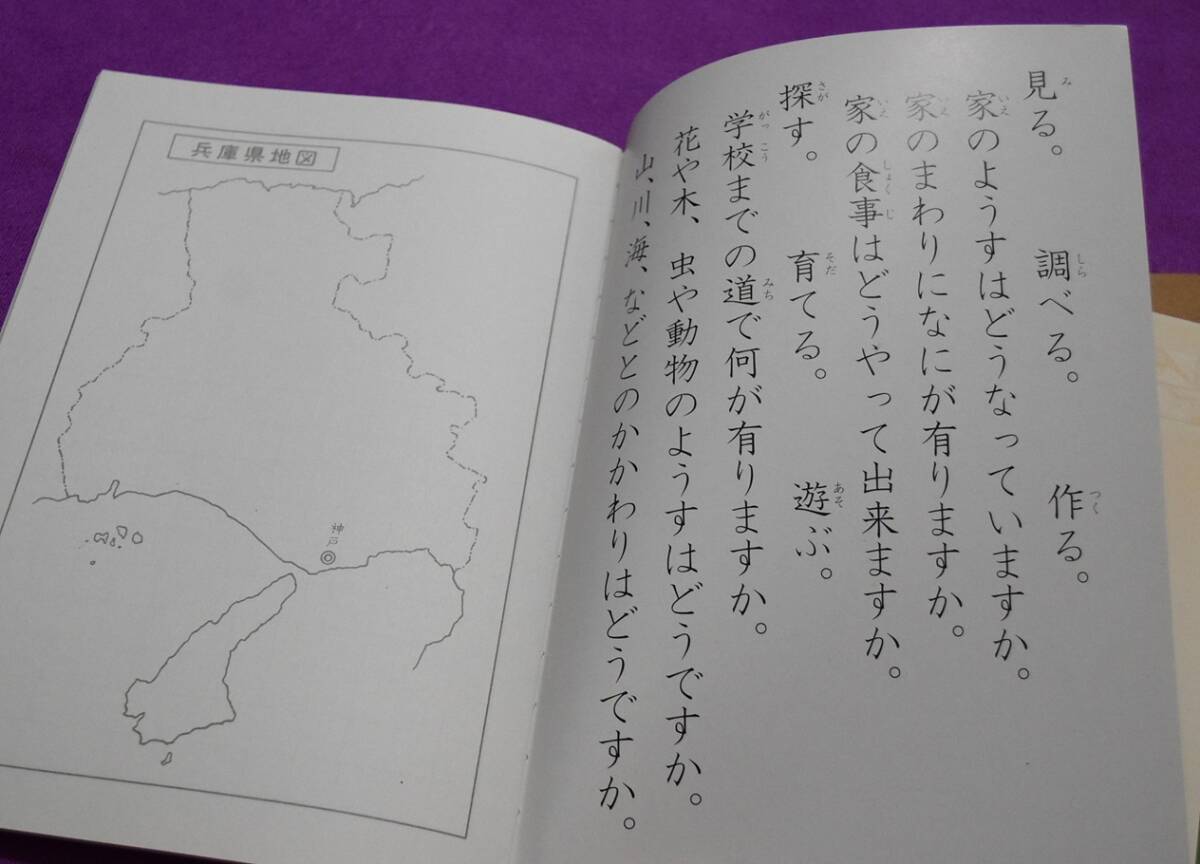 見る。 調べる。 作る。
家のようすはどうなっていますか。
家のまわりになにが有りますか。
家の食事はどうやって出来ますか。
探す。 育てる。 遊ぶ。
学校までの道で何が有りますか。
花や木、虫や動物のようすはどうですか。
山、川、海、などとのかかわりはどうですか。
兵庫県地図
神戸